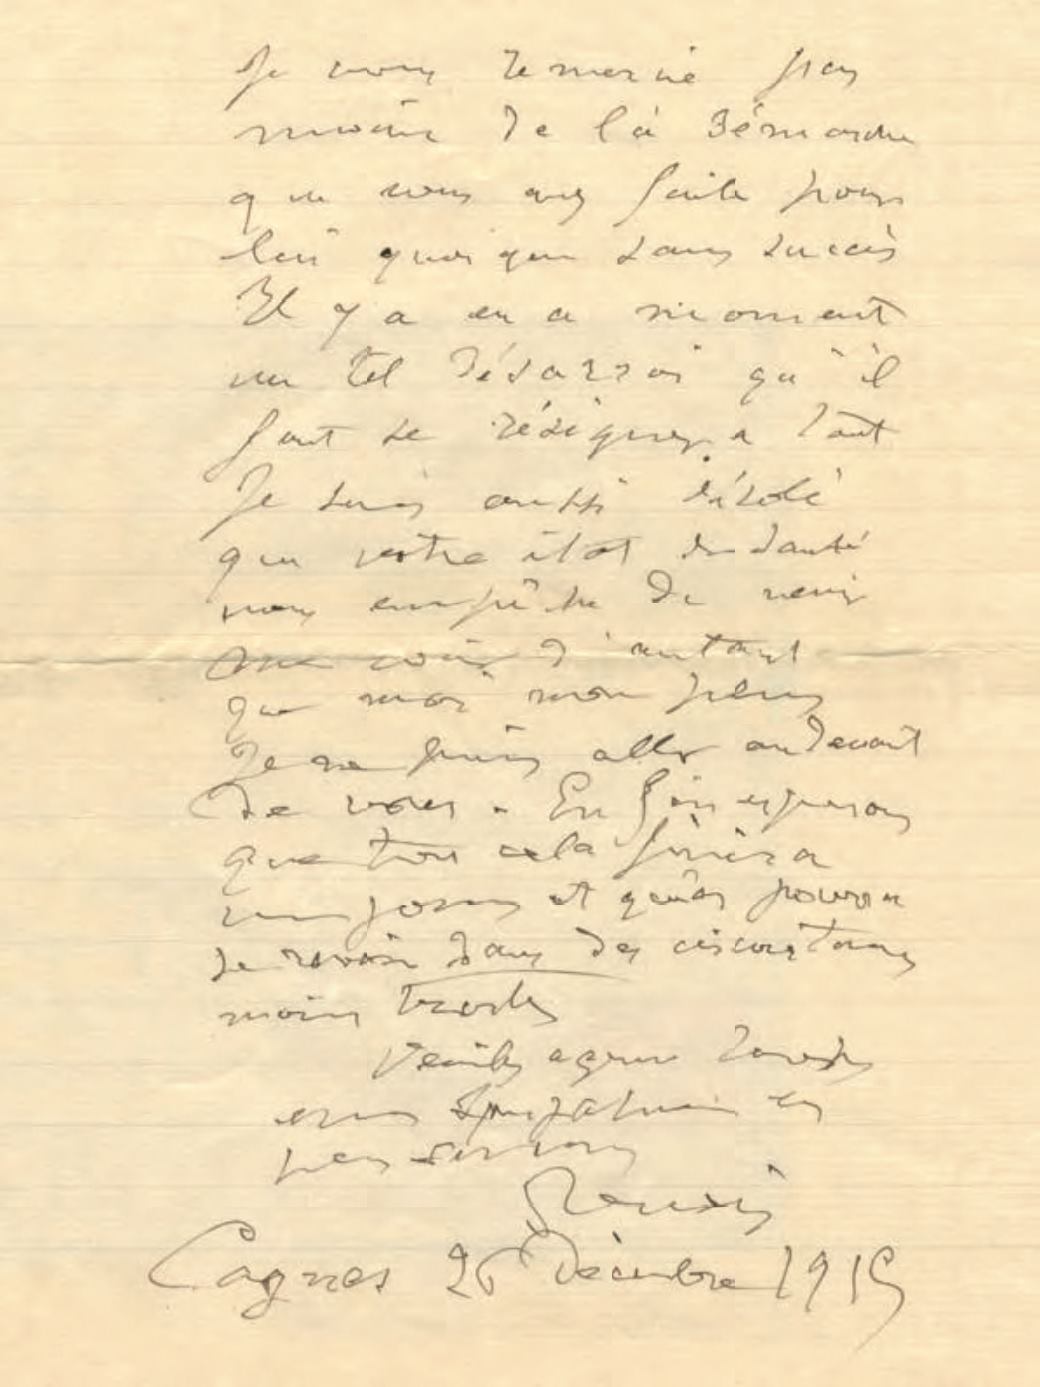 Je vous remercie pas
moins de la démarche
que vous avez faite pour
lui quoique sans succès
Il y a en ce moment
un tel désarroi qu'il
faut se résigner a tout
Je suis aussi désolé
que votre état de santé
vous empêche de venir
me voir d'autant
que moi non plus
Je ne puis aller au devant
de vous. Enfin esperons
que tout cela finira
un jour et qu'on pourra
se revoir dans des circonstances
moins tristes
Veuillez agreer toutes
mes sympathies les
plus
Renoir
Cagnes 26 Décembre 1915